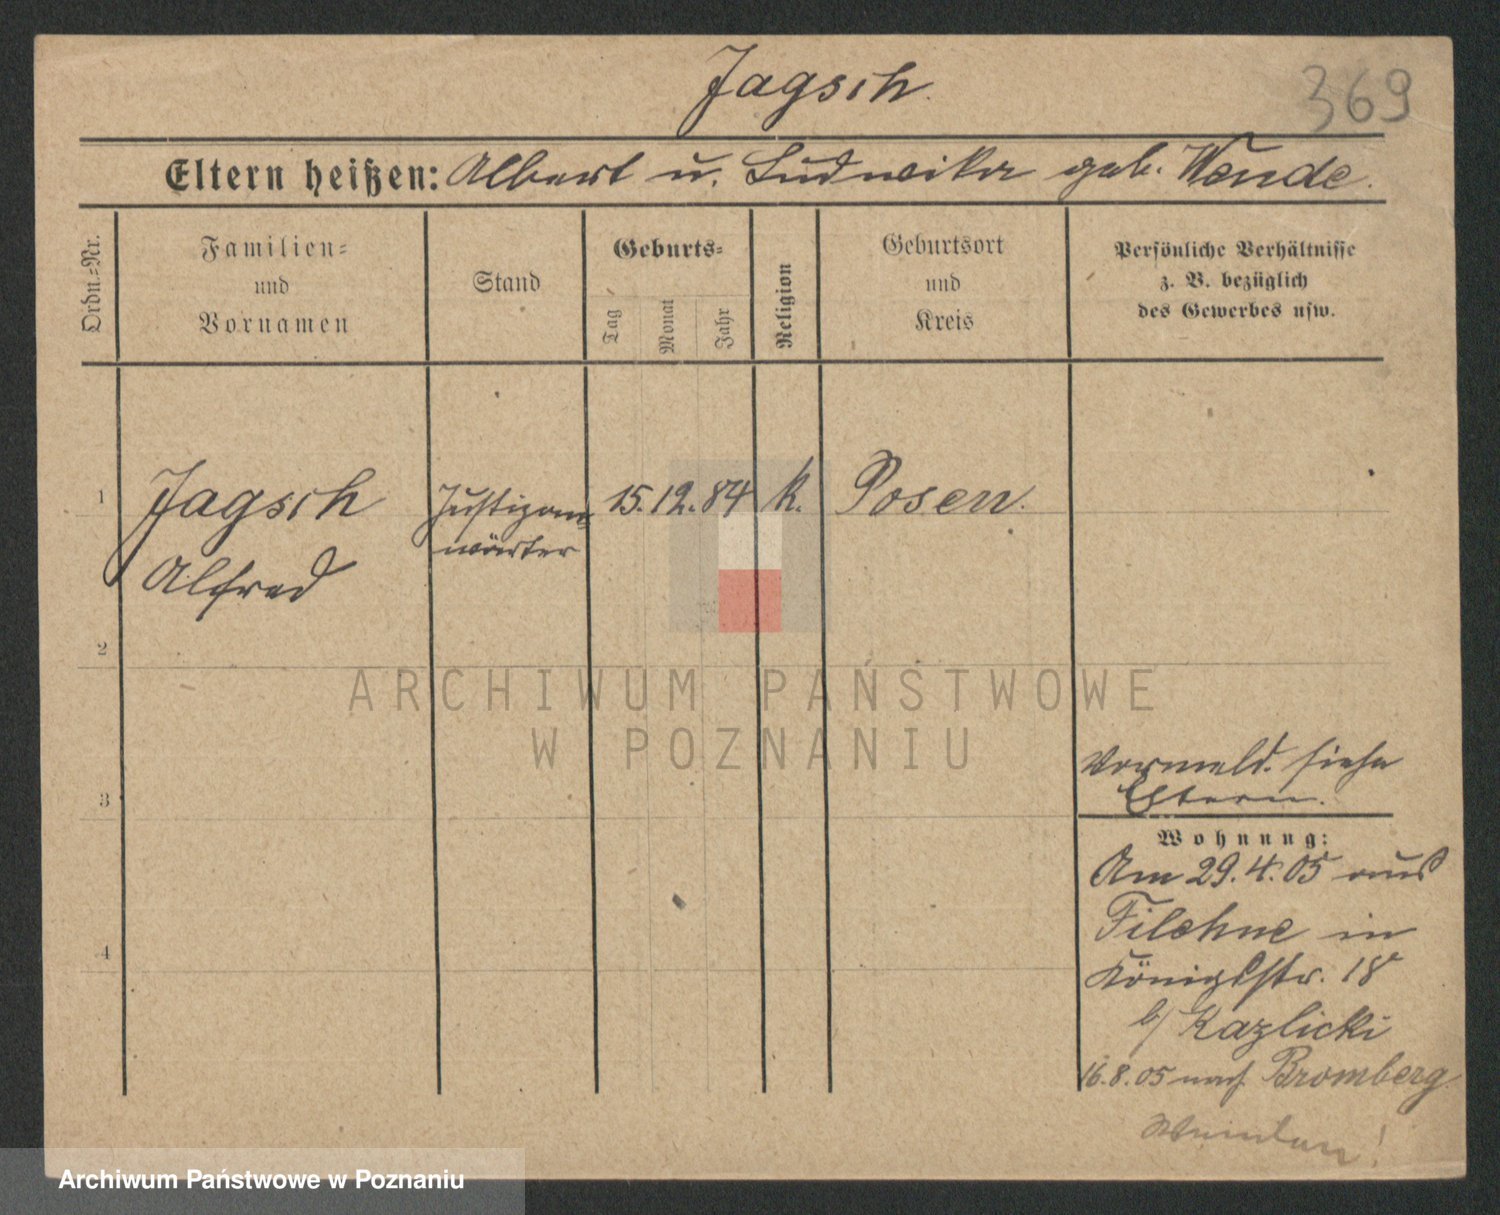 Jagsch.
369
Eltern heißen: Albert u. Ludwika geb. Wende.
Ordn.=Nr.
Familien=
und
Vornamen
Stand
Geburts=
Tag
Monat
Jahr
Religion
Geburtsort
und
Kreis
Persönliche Verhältnisse
z. B. bezüglich
des Gewerbes usw.
1
Jagsch
Alfred
Justizan=
wärter
15. 12. 84
k.
Posen.
2
3
4
Vormeld. siehe
Eltern.
Wohnung:
Am 29.4.05 aus
Filehne in
Königstr. 18
b/ Kazlicki
16.8.05 nach Bromberg
ARCHIWUM PAŃSTWOWE
W POZNANIU
Archiwum Państwowe w Poznaniu